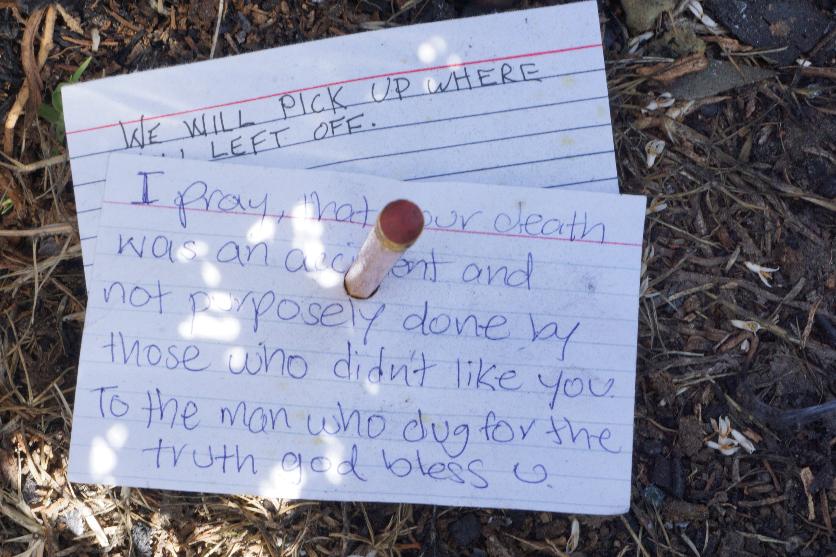 WE WILL PICK UP WHERE
LEFT OFF.
I pray, that your death
was an accident and
not purposely done by
those who didn't like you.
To the man who dug for the
truth god bless u.